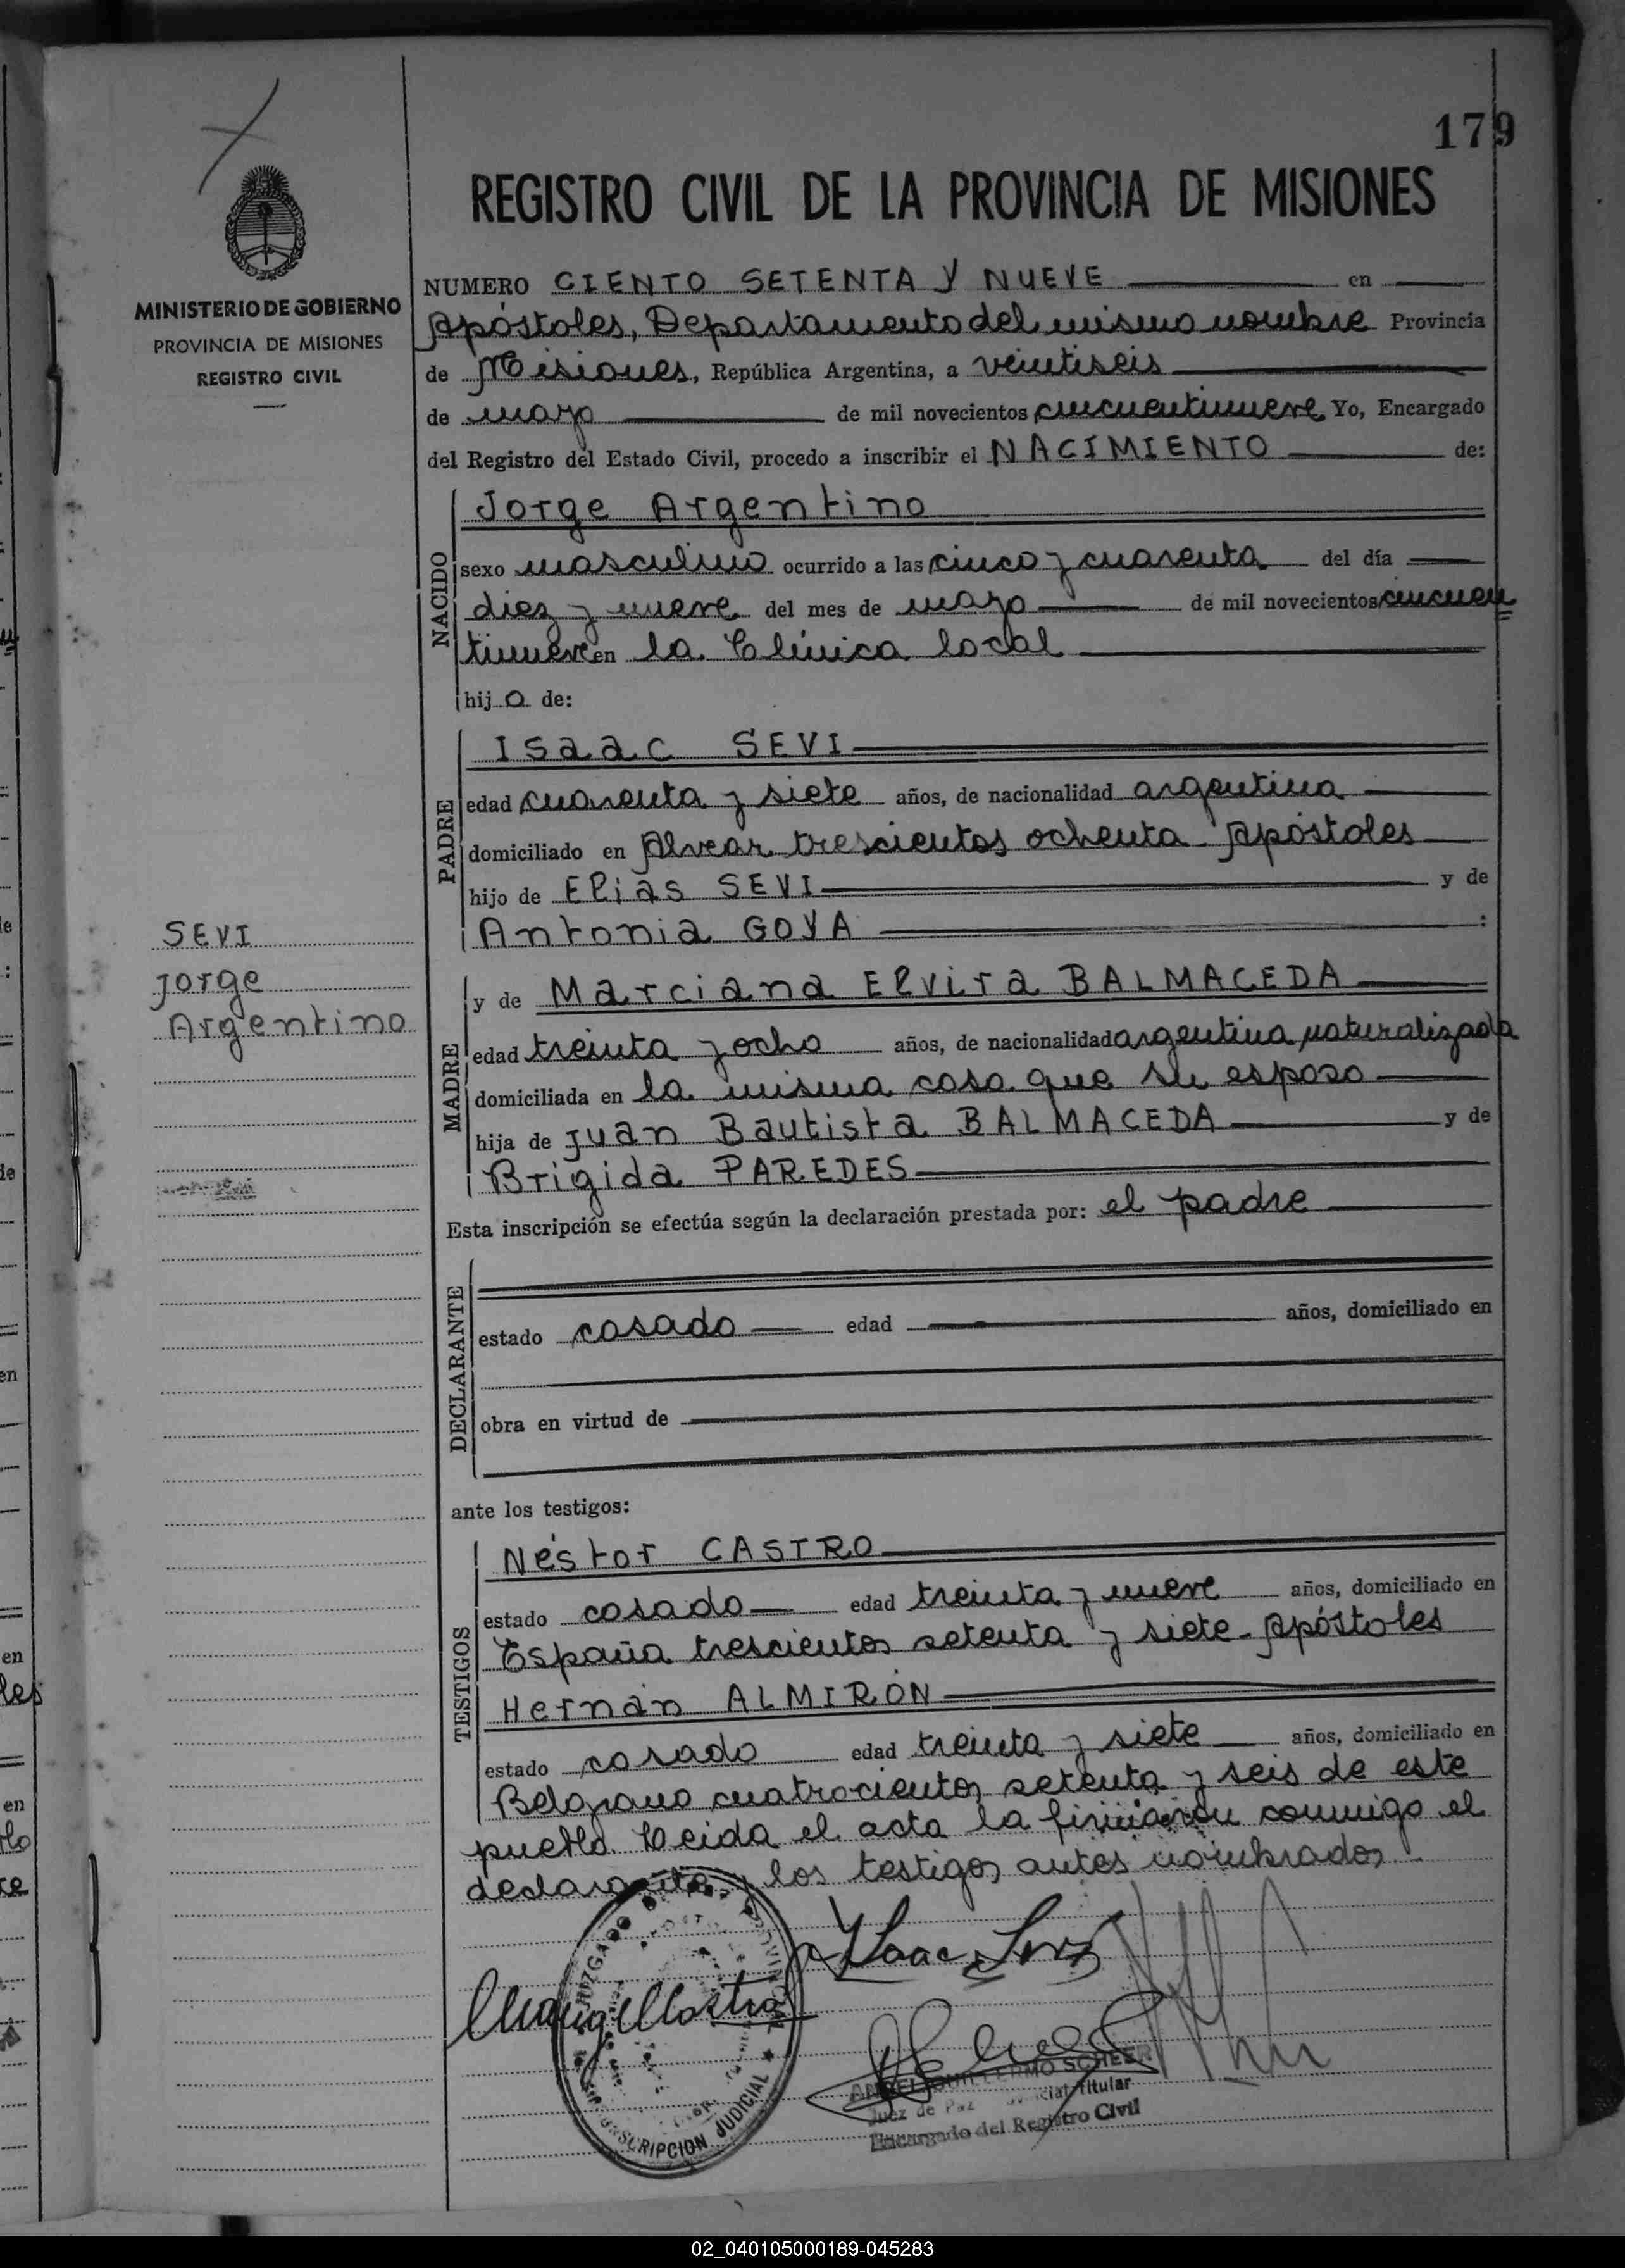 179
REGISTRO CIVIL DE LA PROVINCIA DE MISIONES
MINISTERIO DE GOBIERNO
PROVINCIA DE MISIONES
REGISTRO CIVIL
NUMERO CIENTO SETENTA Y NUEVE en
Apóstoles, Departamento del mismo nombre Provincia
de Misiones, República Argentina, a veintiseis
de mayo de mil novecientos cincuentinueve Yo, Encargado
del Registro del Estado Civil, procedo a inscribir el NACIMIENTO de:
NACIDO
Jorge Argentino
sexo masculino ocurrido a las cinco y cuarenta del día
diez y nueve del mes de mayo de mil novecientos cincuen
tinueve en la Clínica local
hijo de:
PADRE
Isaac SEVI
edad cuarenta y siete años, de nacionalidad argentina
domiciliado en Alvear trescientos ochenta - Apóstoles
hijo de Elias SEVI y de
Antonia GOYA :
SEVI
Jorge
Argentino
MADRE
y de Marciana Elvira BALMACEDA
edad treinta y ocho años, de nacionalidad argentina naturalizada
domiciliada en la misma casa que su esposo
hija de Juan Bautista BALMACEDA y de
Brigida PAREDES
Esta inscripción se efectúa según la declaración prestada por: el padre
DECLARANTE
estado casado edad años, domiciliado en
obra en virtud de
ante los testigos:
TESTIGOS
Néstor CASTRO
estado casado edad treinta y nueve años, domiciliado en
España trescientos setenta y siete - Apóstoles
Hernán ALMIRÓN
estado casado edad treinta y siete años, domiciliado en
Belgrano cuatrocientos setenta y seis de este
pueblo. Leida el acta la firmaron conmigo el
declarante y los testigos antes nombrados.
Isaac Sevi
JUZGADO
SCRIPCION JUDICIAL
ANGEL GUILLERMO SCHEER
Juez de Paz Titular
Encargado del Registro Civil
02_040105000189-045283